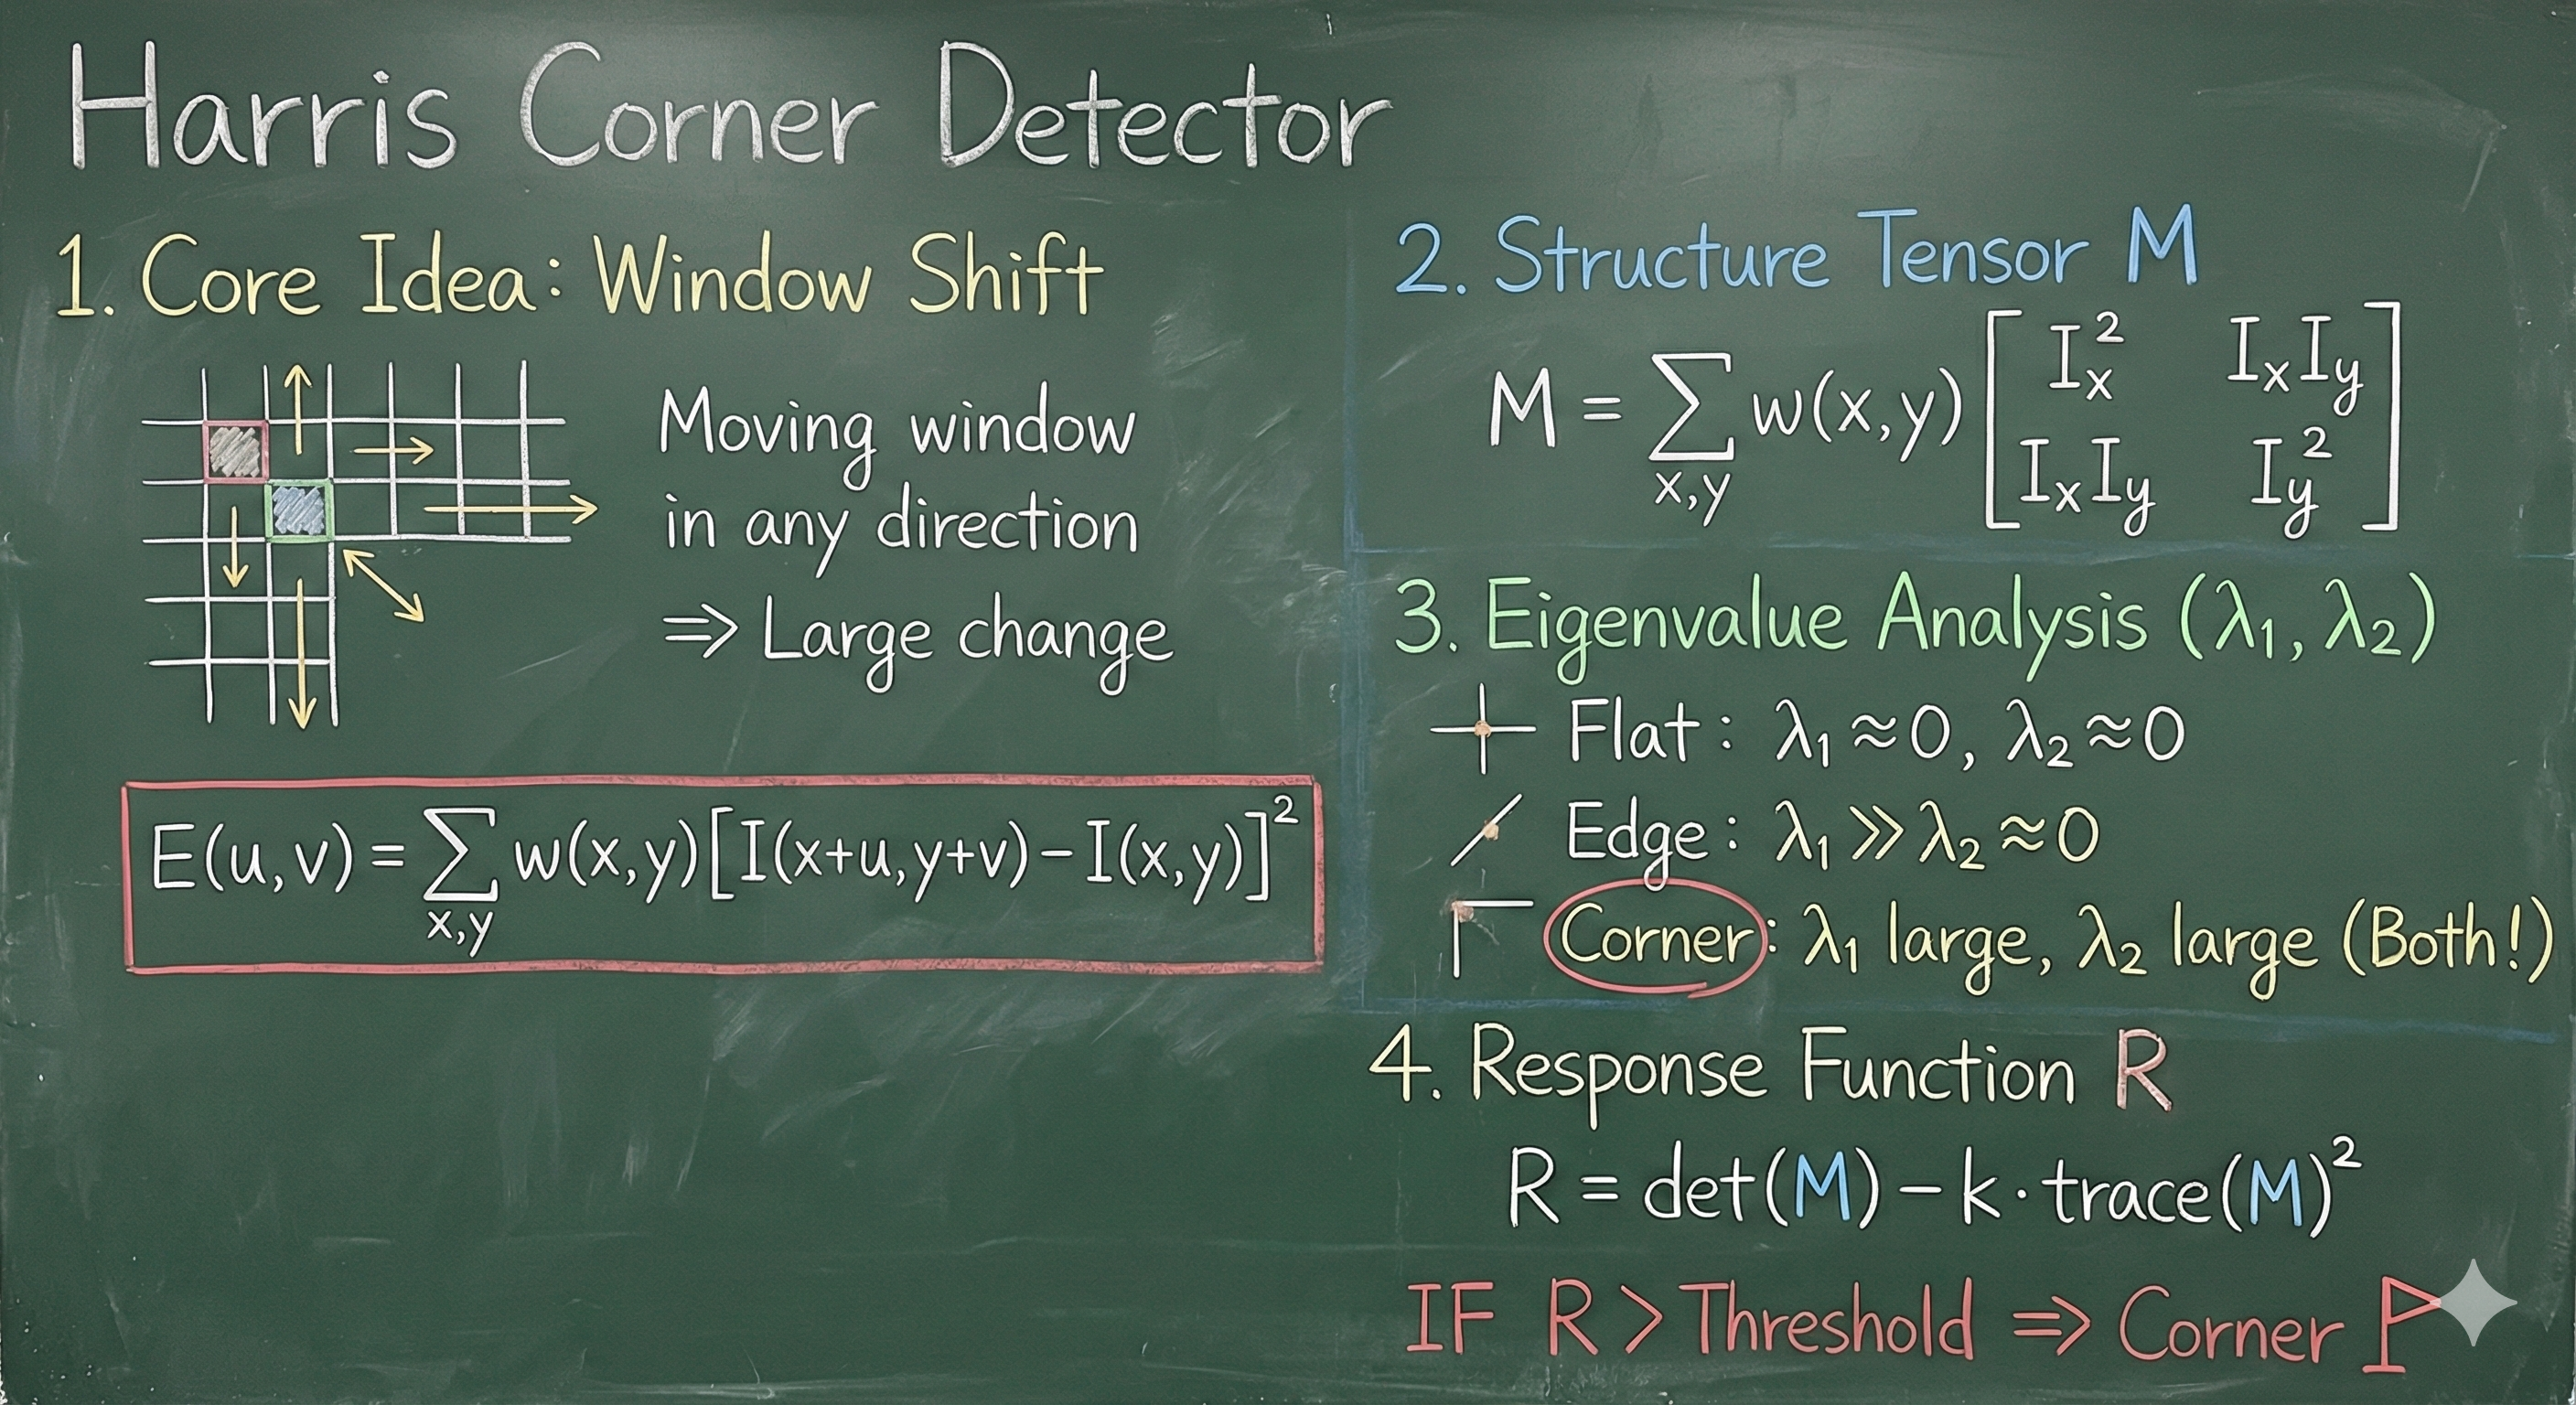 Harris Corner Detector
1. Core Idea: Window Shift
Moving window
in any direction
⇒ Large change
E(u,v) = ∑ w(x,y)[I(x+u,y+v)−I(x,y)]²
x,y
2. Structure Tensor M
M = ∑ w(x,y) [ Iₓ² IₓIy
x,y
IₓIy Iy² ]
3. Eigenvalue Analysis (λ₁, λ₂)
Flat: λ₁≈0, λ₂≈0
Edge: λ₁≫λ₂≈0
Corner: λ₁ large, λ₂ large (Both!)
4. Response Function R
R = det(M) − k·trace(M)²
IF R > Threshold ⇒ Corner